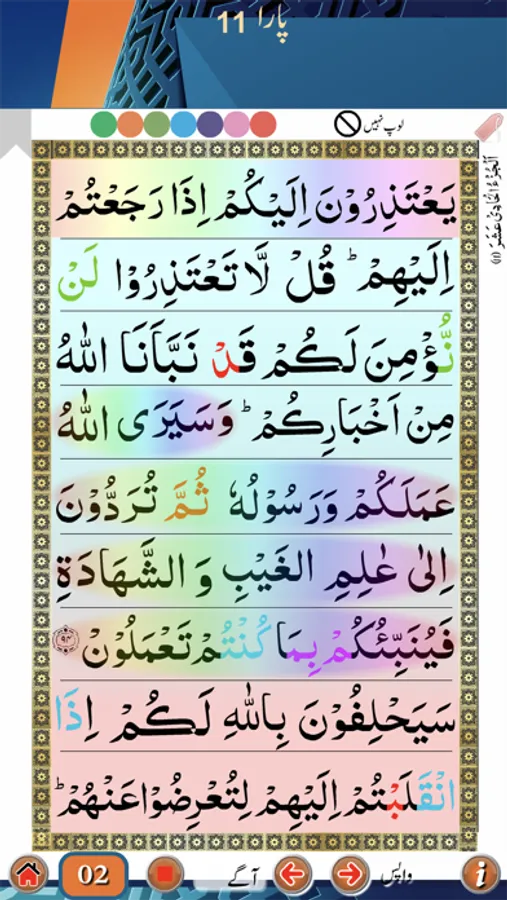 پارا 11
لوپ نہیں
اَلْجُزْءُ الْحَادِیْ عَشَرَ (۱۱)
یَعْتَذِرُوْنَ اِلَیْكُمْ اِذَا رَجَعْتُمْ
اِلَیْهِمْ ؕ قُلْ لَّا تَعْتَذِرُوْا لَنْ
نُّؤْمِنَ لَكُمْ قَدْ نَبَّاَنَا اللّٰهُ
مِنْ اَخْبَارِكُمْ ؕ وَسَیَرَی اللّٰهُ
عَمَلَكُمْ وَرَسُوْلُهٗ ثُمَّ تُرَدُّوْنَ
اِلٰی عٰلِمِ الْغَیْبِ وَ الشَّهَادَةِ
فَیُنَبِّئُكُمْ بِمَا كُنْتُمْ تَعْمَلُوْنَ ﴿۹۴﴾
سَیَحْلِفُوْنَ بِاللّٰهِ لَكُمْ اِذَا
انْقَلَبْتُمْ اِلَیْهِمْ لِتُعْرِضُوْا عَنْهُمْ ؕ
02 آگے واپس i